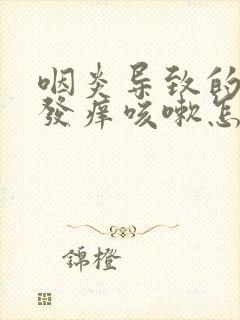 咽炎导致的
發痒咳嗽怎
錦橙